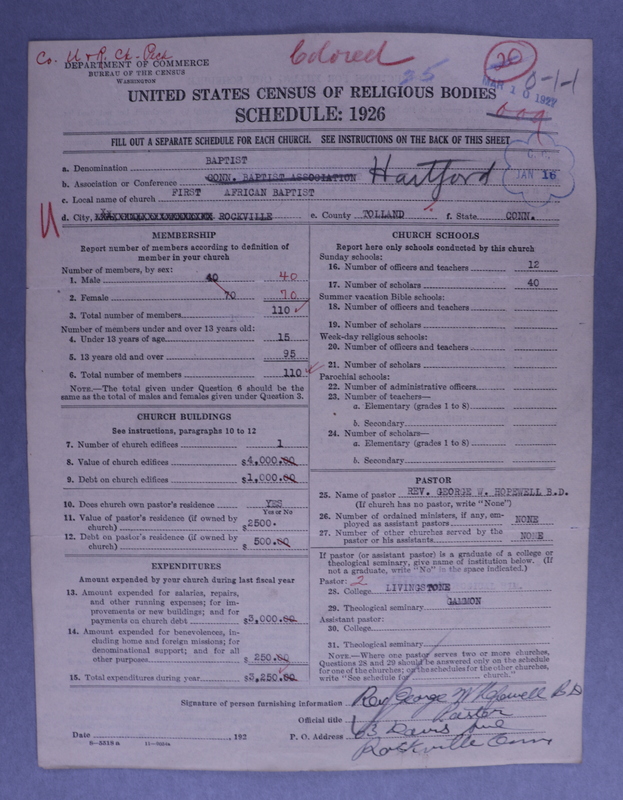 Co. U & R. Ch-Pick
Colored
20
DEPARTMENT OF COMMERCE
BUREAU OF THE CENSUS
WASHINGTON
25
MAR 10 1927
0-1-1
UNITED STATES CENSUS OF RELIGIOUS BODIES
SCHEDULE: 1926
009
FILL OUT A SEPARATE SCHEDULE FOR EACH CHURCH. SEE INSTRUCTIONS ON THE BACK OF THIS SHEET
JAN 16
a. Denomination BAPTIST
b. Association or Conference CONN. BAPTIST ASSOCIATION Hartford
c. Local name of church FIRST AFRICAN BAPTIST
d. City, ROCKVILLE e. County TOLLAND f. State CONN.
MEMBERSHIP
Report number of members according to definition of
member in your church
Number of members, by sex:
1. Male 40 40
2. Female 70 70
3. Total number of members 110
Number of members under and over 13 years old:
4. Under 13 years of age 15
5. 13 years old and over 95
6. Total number of members 110
NOTE.—The total given under Question 6 should be the
same as the total of males and females given under Question 3.
CHURCH BUILDINGS
See instructions, paragraphs 10 to 12
7. Number of church edifices 1
8. Value of church edifices $4,000.00
9. Debt on church edifices $1,000.00
10. Does church own pastor's residence YES
Yes or No
11. Value of pastor's residence (if owned by
church) $2500.
12. Debt on pastor's residence (if owned by
church) $ 500.00
EXPENDITURES
Amount expended by your church during last fiscal year
13. Amount expended for salaries, repairs,
and other running expenses; for im-
provements or new buildings; and for
payments on church debt $3,000.00
14. Amount expended for benevolences, in-
cluding home and foreign missions; for
denominational support; and for all
other purposes $ 250.00
15. Total expenditures during year $3,250.00
CHURCH SCHOOLS
Report here only schools conducted by this church
Sunday schools:
16. Number of officers and teachers 12
17. Number of scholars 40
Summer vacation Bible schools:
18. Number of officers and teachers
19. Number of scholars
Week-day religious schools:
20. Number of officers and teachers
21. Number of scholars
Parochial schools:
22. Number of administrative officers
23. Number of teachers—
a. Elementary (grades 1 to 8)
b. Secondary
24. Number of scholars—
a. Elementary (grades 1 to 8)
b. Secondary
PASTOR
25. Name of pastor REV. GEORGE W. HOPEWELL B.D.
(If church has no pastor, write "None")
26. Number of ordained ministers, if any, em-
ployed as assistant pastors NONE
27. Number of other churches served by the
pastor or his assistants NONE
If pastor (or assistant pastor) is a graduate of a college or
theological seminary, give name of institution below. (If
not a graduate, write "No" in the space indicated.)
Pastor: 2
28. College LIVINGSTONE
29. Theological seminary GAMMON
Assistant pastor:
30. College
31. Theological seminary
NOTE.—Where one pastor serves two or more churches,
Questions 28 and 29 should be answered only on the schedule
for one of the churches; on the schedules for the other churches,
write "See schedule for church."
Signature of person furnishing information Rev George W Hopewell B D
Official title Pastor
Date , 192 P. O. Address 63 Davis Ave
Rockville Conn